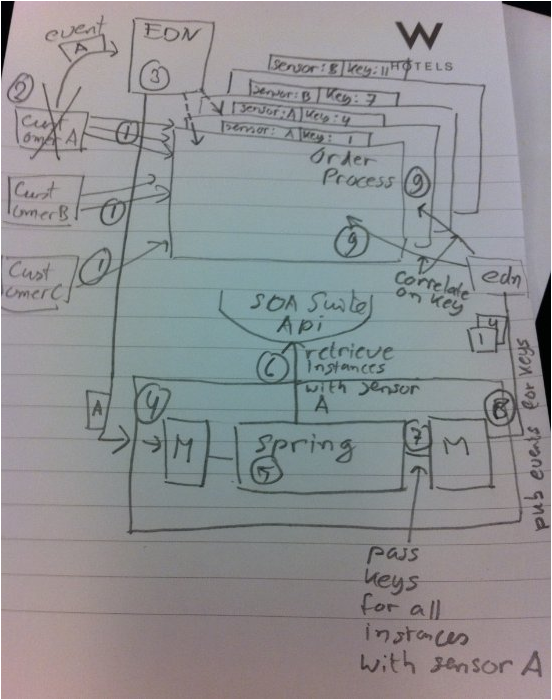 event
A
EDN
3
W
HOTELS
sensor:B key:11
sensor:B key:7
sensor:A key:4
sensor: A key: 1
2
Cust
omerA
1
Order
Process
9
Cust
omerB
1
9
Cust
omerC
1
correlate
on key
edn
4
1
SOA Suite
Api
6
retrieve
instances
with sensor
A
A
4
M
spring
5
7
M
8
pub events for keys
pass
keys
for all
instances
with sensor A